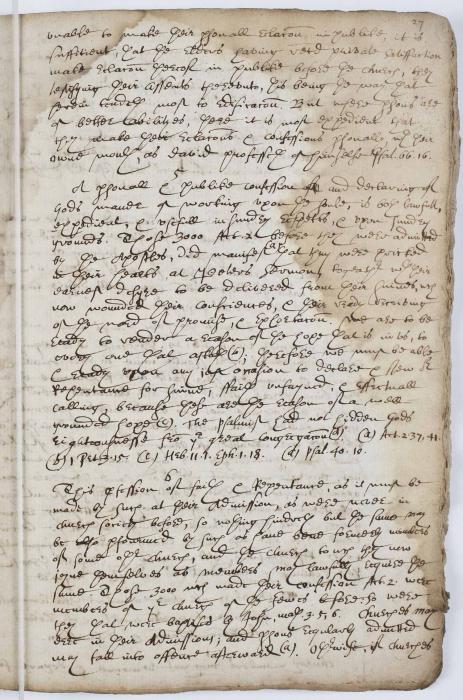 27
unable to make their psonall relation, in publike, it is
sufficient, that the Elders having recd private satisfaction
make relation thereof in publike before the church, they
testifying their assents thereunto, this being the way that
tendeth most to edification. But where psons are
of better abilities, there it is most expedient that
they make their relations & confessions psonally wth their
owne mouth, as david professeth of himselfe Psal. 66. 16.
5
A psonall & publike confession and declaring of
Gods maner of working upon the soule, is both lawfull,
expedient, & usefull in sundry respects, & upon sundry
grounds. Those 3000 Act. 2. before they were admitted
by the Apostles, did manifest that they were pricked
in their hearts at Peters sermon, together wth their
earnest desire to be delivered from their sinnes, wch
now wounded their consciences, & their ready receiving
of the word of promise, & exhortation. We are to be
ready to render a reason of the hope that is in us, to
every one that asketh (b), therefore we must be able
& ready upon any just occasion to declare & shew
Repentance for sinne, faith unfayned, & effectuall
calling because these are the reason of a well
grounded hope (c). The psalmist had not hidden Gods
righteousnesse fro ye great congregation (d) (a) Act. 2. 37, 41.
(b) 1 Pet. 3. 15. (c) Heb. 11. 1. Eph. 1. 18. (d) Psal. 40. 10.
6
This pfession of faith & Repentance as it must be
made by such at their admission, as were never in
church society before, so nothing hindreth but the same may
be also pformed by such as have bene formerly members
of some other church, and the church to wch they now
joyne themselves as members may lawfully require the
same. Those 3000 wch made their confession Act. 2. were
members of ye church of the Jewes before so were
they that were baptised by John, Mat. 3. 5, 6. Churches may
erre in their admissions; and psons regularly admitted
may fall into offence afterward (a). Otherwise, if churches